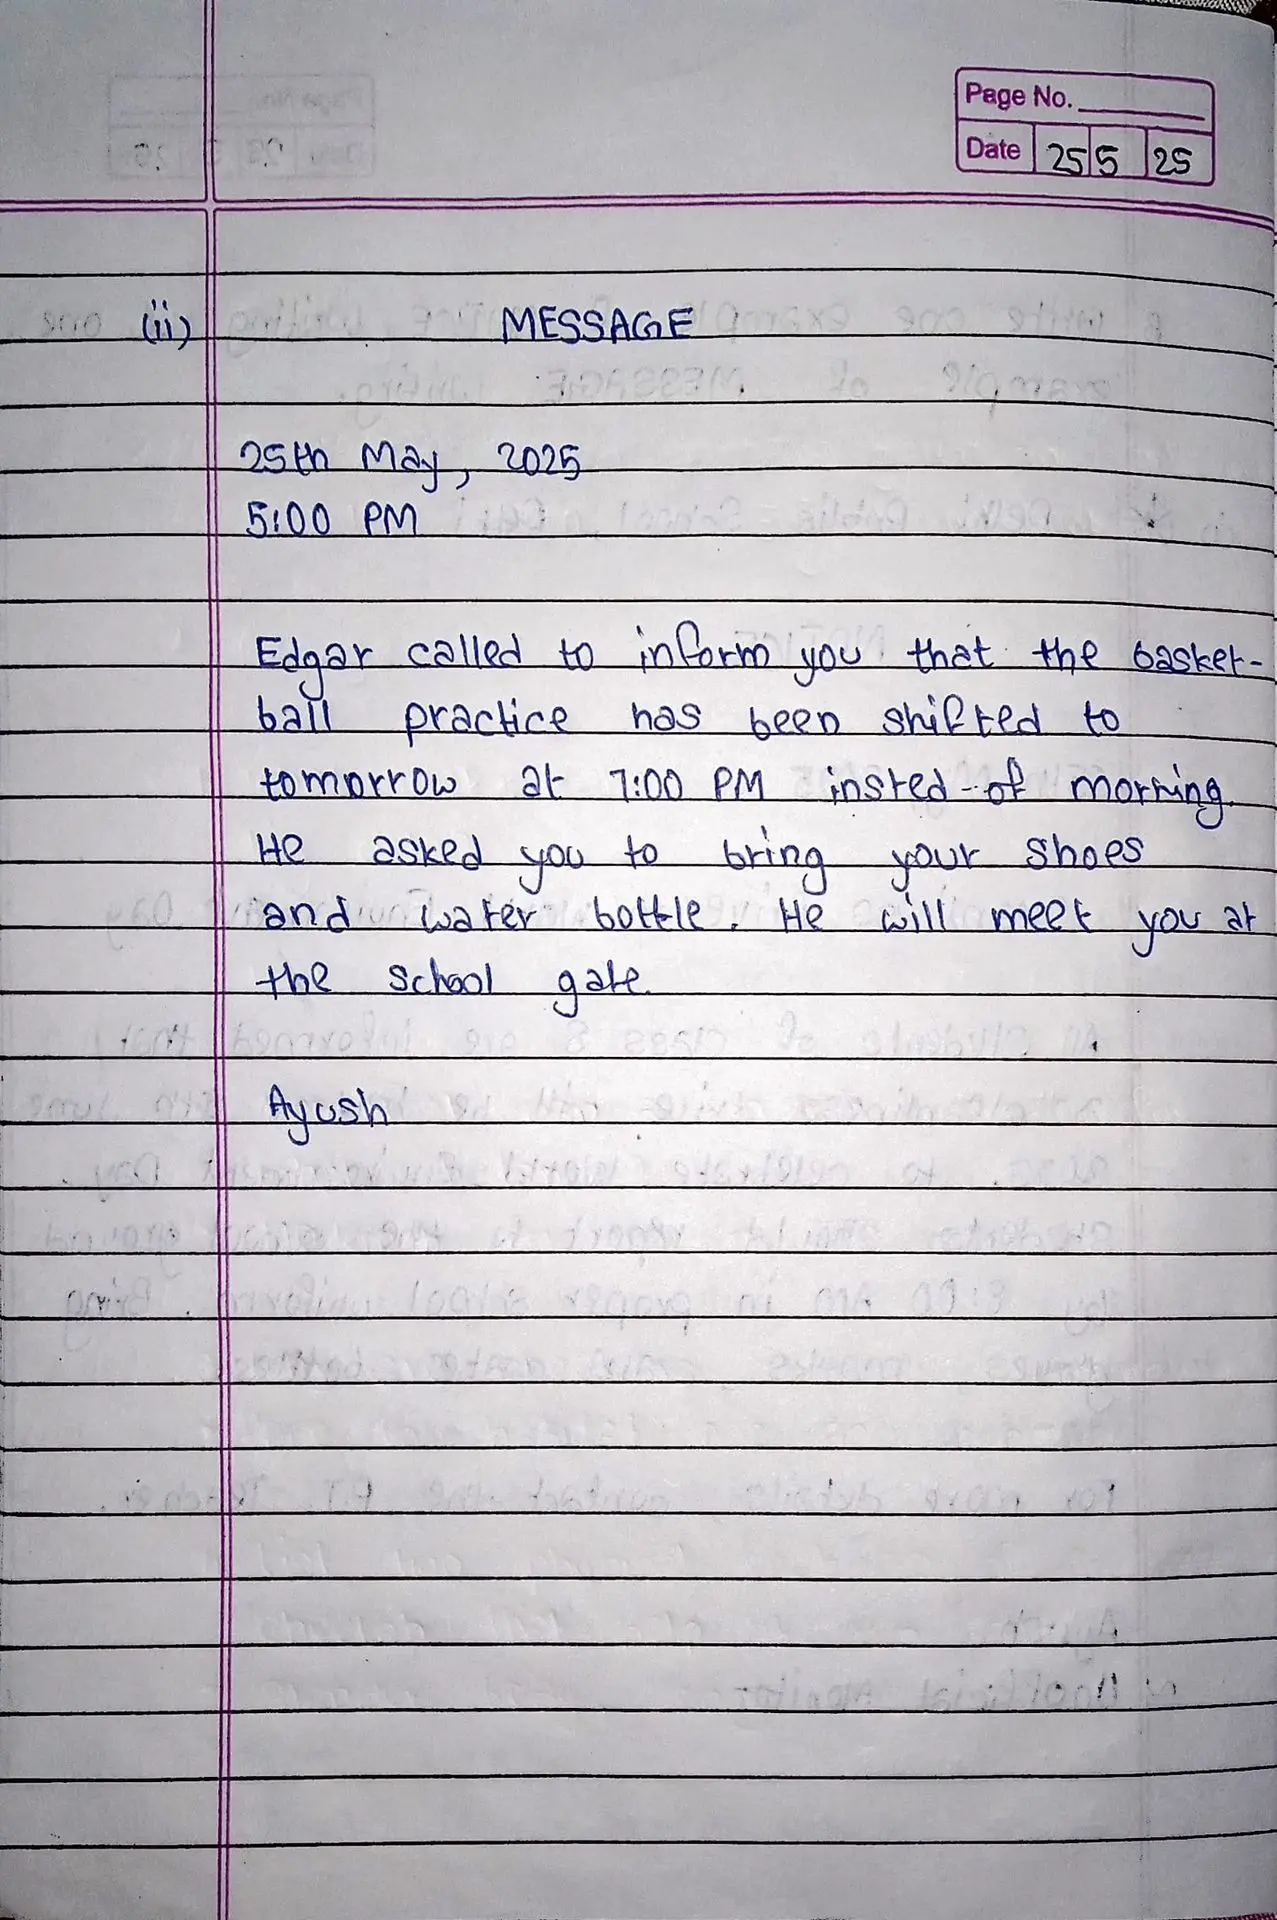 Page No.
Date 25 5 25
(ii) MESSAGE
25th May, 2025
5:00 PM
Edgar called to inform you that the basket-
ball practice has been shifted to
tomorrow at 7:00 PM insted of morning.
He asked you to bring your shoes
and water bottle. He will meet you at
the school gate.
Ayush